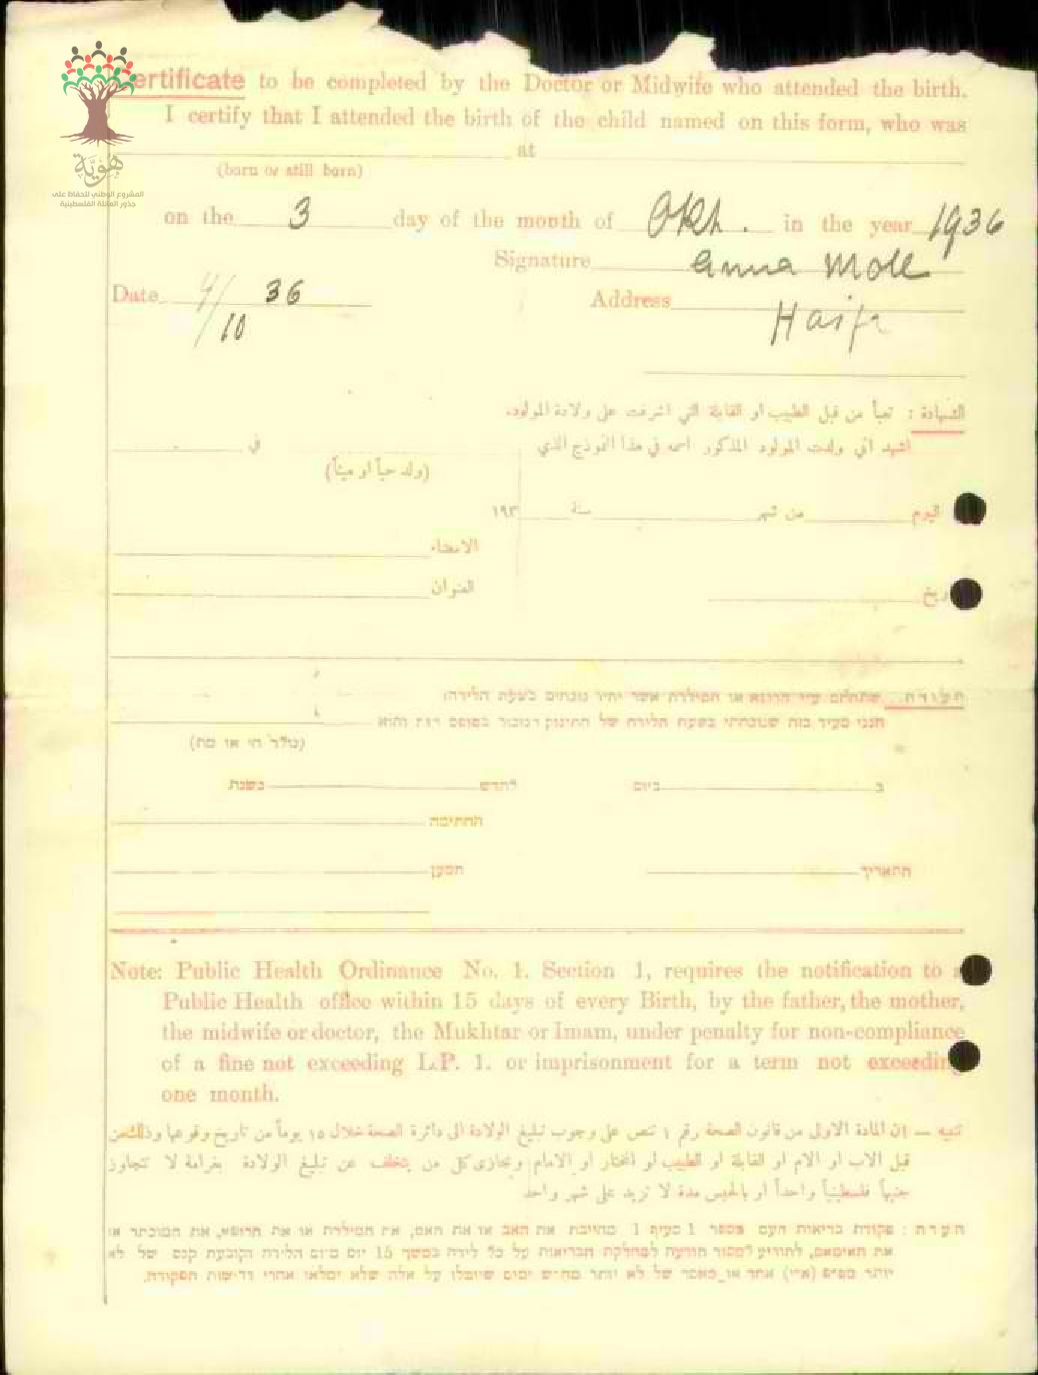 Certificate to be completed by the Doctor or Midwife who attended the birth.
I certify that I attended the birth of the child named on this form, who was
at
(born or still born)
on the 3 day of the month of Okt. in the year 1936
Signature Anna Moll
Date 4/10 36
Address Haifa
هوية
المشروع الوطني للحفاظ على
جذور العائلة الفلسطينية
الشهادة : تعبأ من قبل الطبيب او القابلة التي اشرفت على ولادة المولود.
اشهد اني ولدت المولود المذكور اسمه في هذا النموذج الذي في
(ولد حياً او ميتاً)
اليوم من شهر سنة ١٩٣
الامضاء
العنوان
ريخ
תעודה. שתתלום ע״י הרופא או המילדת אשר יהיו נוכחים בשעת הלידה:
הנני מעיד בזה שנוכחתי בשעת הלידה של התינוק הנזכר בטופס הזה והוא
(נולד חי או מת)
ב ביום לחדש בשנת
החתימה
התאריך
המען
Note: Public Health Ordinance No. 1. Section 1, requires the notification to a
Public Health office within 15 days of every Birth, by the father, the mother,
the midwife or doctor, the Mukhtar or Imam, under penalty for non-compliance
of a fine not exceeding L.P. 1. or imprisonment for a term not exceeding
one month.
تنبيه — إن المادة الاولى من قانون الصحة رقم ١ تنص على وجوب تبليغ الولادة الى دائرة الصحة خلال ١٥ يوماً من تاريخ وقوعها وذلك من
قبل الاب او الام او القابلة او الطبيب او المختار او الامام ويجازى كل من يتخلف عن تبليغ الولادة بغرامة لا تتجاوز
جنيهاً فلسطينياً واحداً او بالحبس مدة لا تزيد على شهر واحد
הערה : פקודת בריאות העם מספר 1 סעיף 1 מחייבת את האב או את האם, את המילדת או את הרופא, את המוכתר או
את האימאם, למסור הודעה למחלקת הבריאות על כל לידה במשך 15 יום מיום הלידה וקובעת קנס של לא
יותר מפונט (א״י) אחד או מאסר של לא יותר מחדש ימים שיוטלו על אלה שלא ימלאו אחרי דרישות הפקודה.